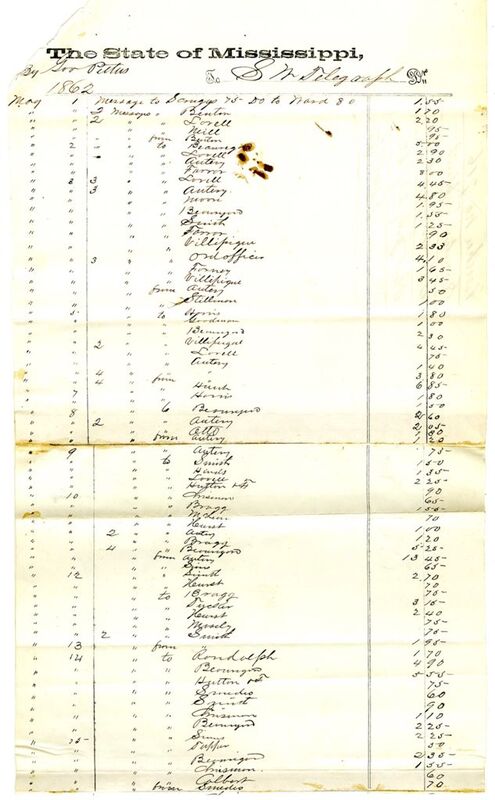 The State of Mississippi,
By Gov Pettus To S W Telegraph Dr
1862
May 1 Message to Scruggs 75- Do to Ward 80 1.55
" " 2 Messages " Benton 1 70
" " 2 " " Lovell 2 20
" " " " Neill 95
" " " from Benton 95
" 2 " to Beauregard 5 00
" " " " Lovell 2 90
" " " " Autery 2 30
" " " " Farror 3 00
" 3 3 " " Lovell 4 45
" " 3 " " Autery 4 80
" " " " Moore 1.95
" " " " Beauregard 1.55
" " " " Smith 1 25
" " " " Farror 90
" " " " Villipigue 2 33
" " 3 " " Ord officer 4.10
" " " " Forney 1 65
" " " " Villipigue 3 45
" " " from Autery 50
" " " " Stillman 1 00
" 5 " to Harris 1 80
" " " " Goodman 1 00
" " " " Beauregard 2 30
" " 2 " " Villipigue 4 45
" " " " Lovell 75
" " " " Autery 1 40
" " 4 " from " 3 80
" " 4 " " Hurst 6 85
" 7 " " Harris 1 80
" 8 " to Beauregard 50
" " 2 " " Autery 2 60
" " " " Otto
" " " from Autery 1 20
" 9 " " Autery 75
" " " to Smith 1 50
" " " " Hinds 1 35
" " " " Lovell 2 25
" " " " Hutton 90
" 10 " " Chrisman 65
" " " " Bragg 1 55
" " " " 70
" " " " Hurst 1 00
" " 2 " " Autery 1 20
" " " " Bragg
" " 4 " " Beauregard 5 25
" " " from Autery 13 45
" " " " Sims 65
" 12 " " Smith 2 70
" " " " Hurst 70
" " " to Bragg 75
" " " " 3 15
" " " " Hurst 2 40
" " " " Mosely 75
" " 2 " " Smith 75
" 13 " from " 1 95
" 14 " to Randolph 1 70
" " " " Beauregard 4 90
" " " " Hutton 5 55
" " " " Smedes 75
" " " " Smith 60
" " " " Chrisman 90
" " " " Beauregard 1 10
" " " " Sims 2 25
" 15 " " Tapper 2 25
" " " " Beauregard 50
" " " " Chrisman 2 35
" " " " Colbert 1 55
" " " from Smedes 60
70